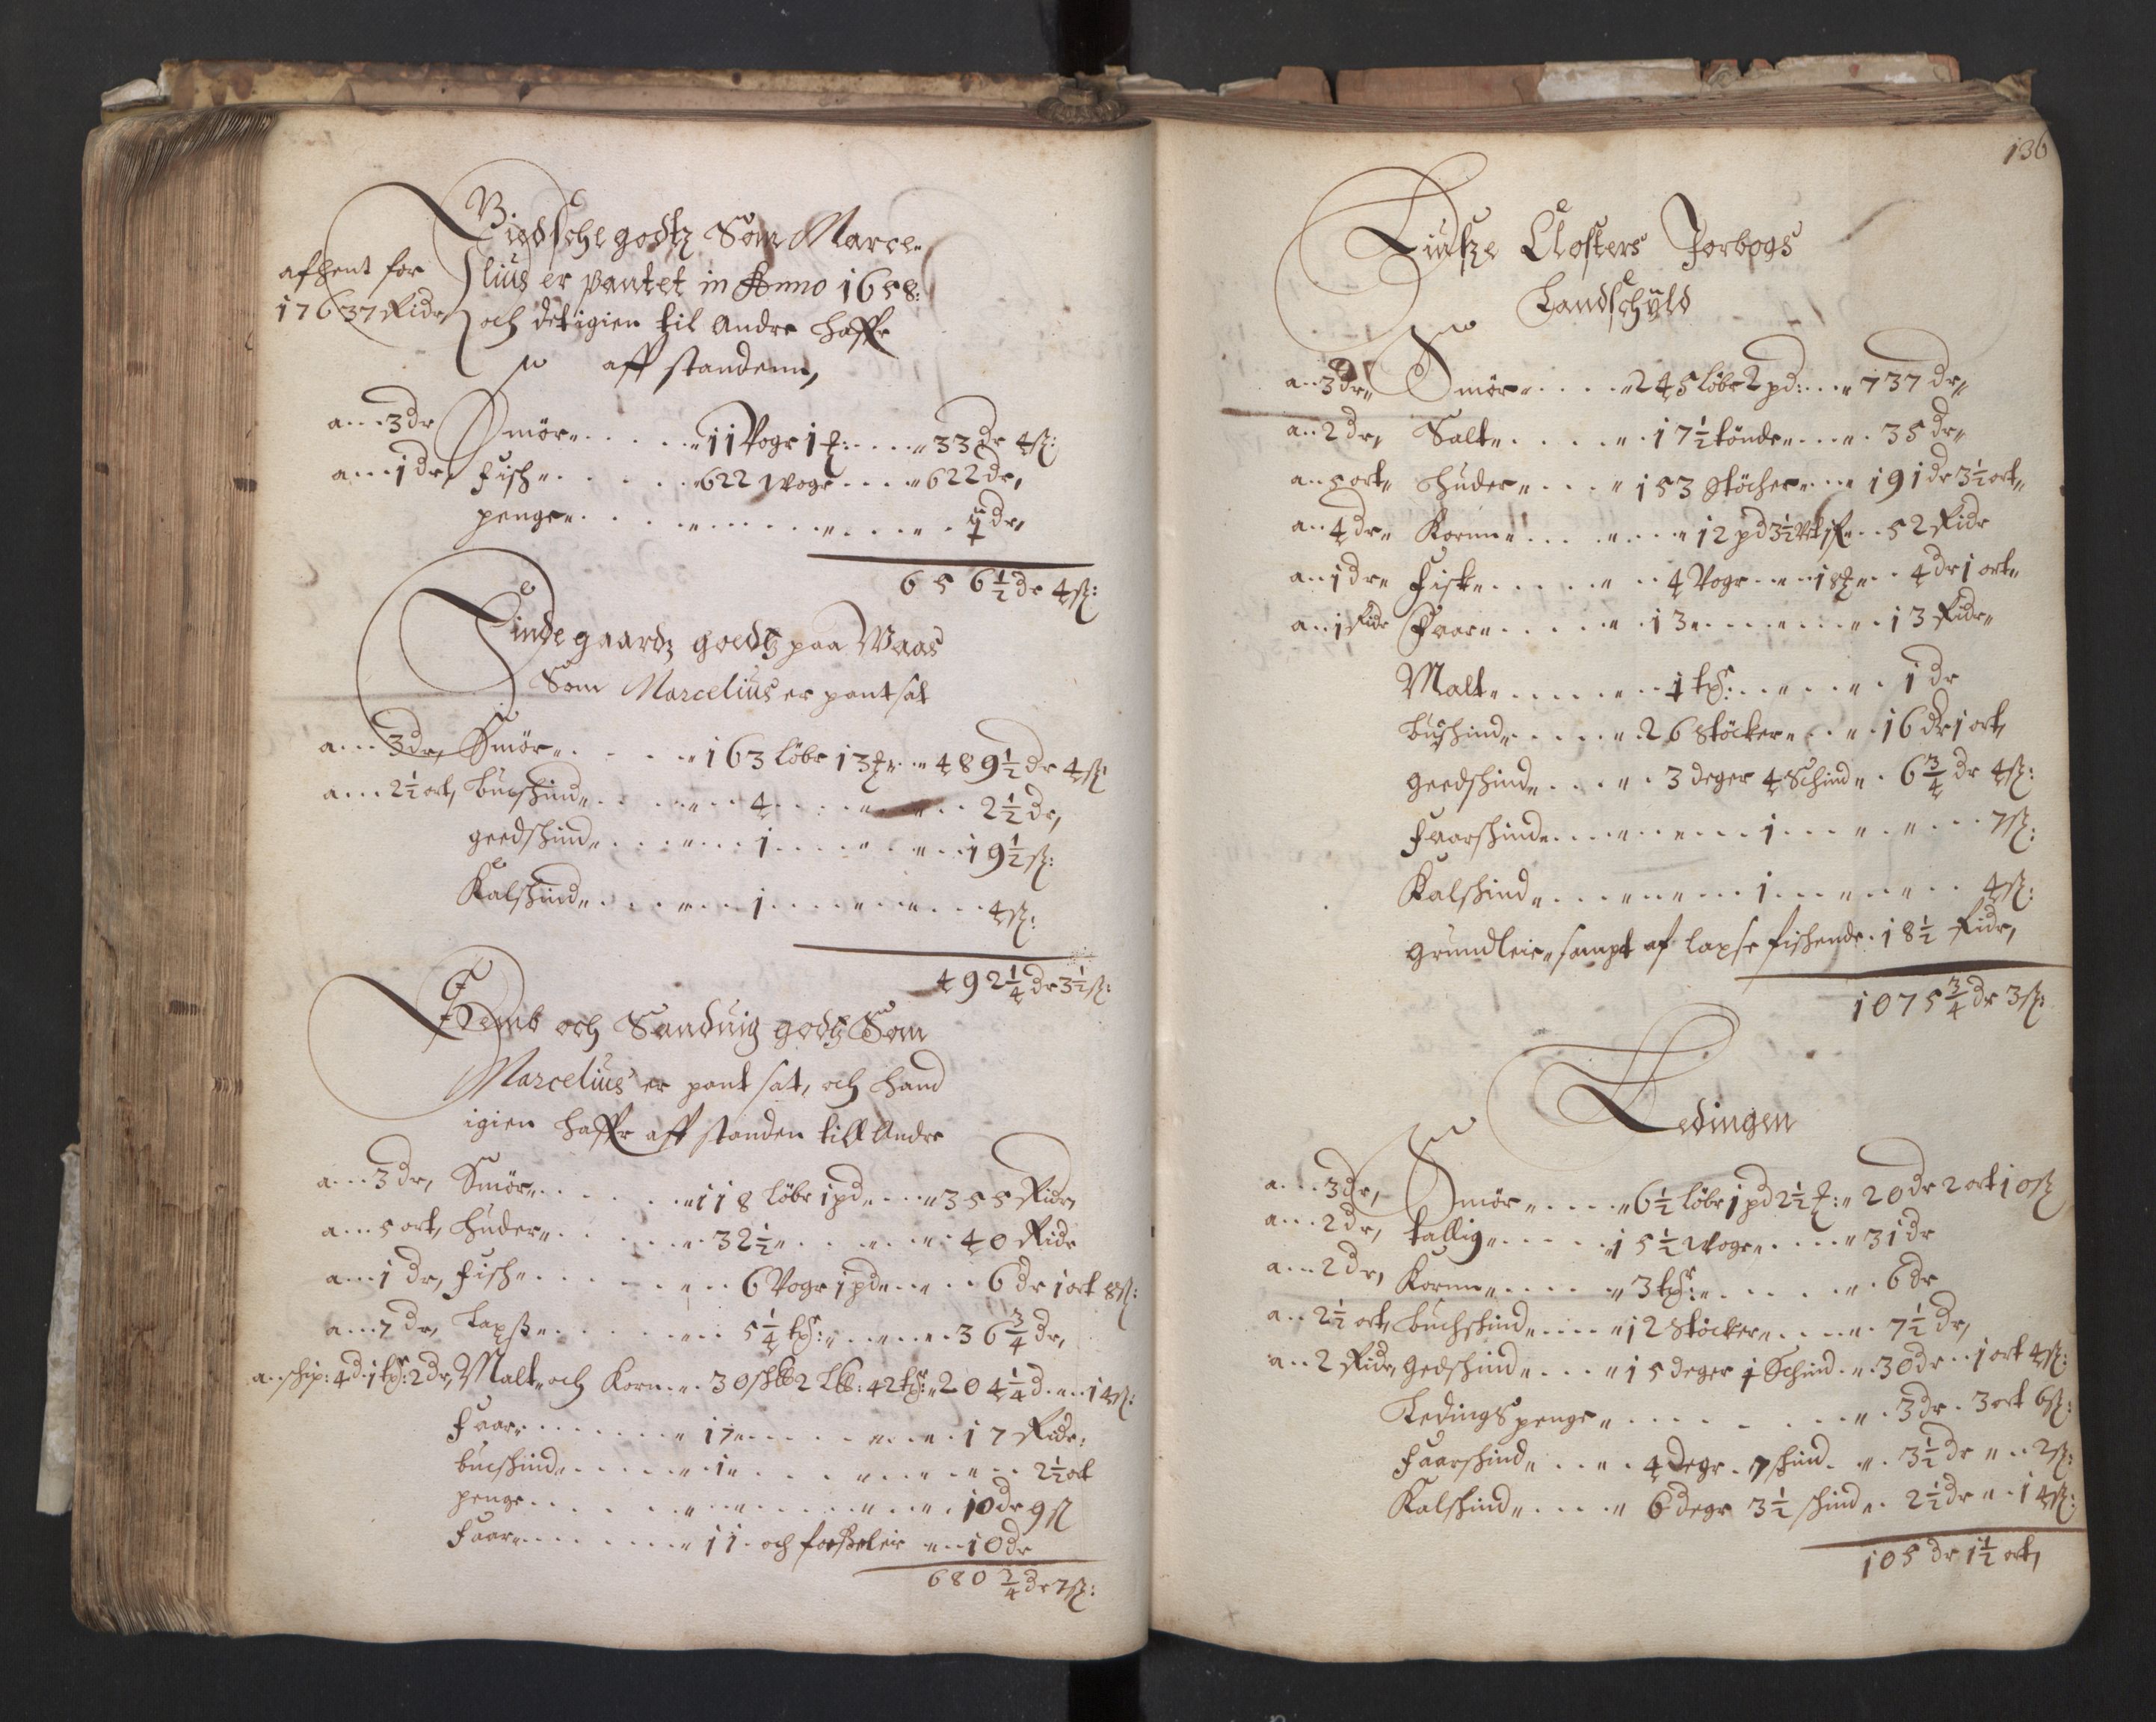 Giedsche godtz Som Marce-
afhent for
17637 Ridr
lius er pantet in Anno 1658:
och det igien til Andre haffr
aff standenn,
a...3 dr Smör......11 Vogr 1 ℔:....33 dr 4 ß:
a...1 dr, Fisch......622 Wogr....622 dr,
penge..........
656½ dr 4 ß:
Findegaardz goedtz paa Waas
Som Marcelius er pantsat
a...3 dr, Smör.....163 löbr 13 ℔...489½ dr 4 ß
a...2½ ort, bucskind.......4.......2½ dr,
geedskind.......1.......19½ ß:
Kalfskind.......1.......4 ß:
492¼ dr 3½ ß:
och Sanduig godtz Som
Marcelius er pant sat, och hand
igien haffr aff standen till Andre
a...3 dr, Smör......118 löbr 1 pd....355 Ridr,
a...5 ort, huder......32½......40 Ridr
a...1 dr, fisch......6 Vogr 1 pd....6 dr 1 ort 8 ß:
a...7 dr, Laxß......5¼ tþ:.....36¾ dr,
Malt och Korn.. 30 2 : 42 .. 204¼ d...14 ß:
Faar.......17.......17 Ridr:
bucskind.......1.......2½ ort
penge..........10 dr 9 ß
Faar.......11. och ..10 dr
680¾ dr 7 ß:
136
Closters Jorbogs
Landschyld
a..3 dr, Smör.....245 löbr 2 pd:...737 dr,
a..2 dr, Salt.....17½ tönde....35 dr,
a..5 ort, Huder....153 Stöcher...191 dr 3½ ort,
a..4 dr, Kornn.....12 pd 3½ ...52 Ridr
a..1 dr, Fisk.....4 Vogr....18 ℔..4 dr 1 ort,
a..1 Ridr Faar.....13......13 Ridr,
Malt......1 tþ:.....1 dr
buckind.....26 Stöcker....16 dr 1 ort,
geedskind.....3 deger 4 Schind..6¾ dr 4 ß:
Faarskind.......1.......7 ß:
Kalfskind.......1.......4 ß:
grundleie, sampt af laxse fiskende. 18½ Ridr,
1075¾ dr 3 ß:
Ledingen
a...3 dr, Smör.....6½ löbr 1 pd 2½ ℔: 20 dr 2 ort 10 ß
a...2 dr, tallig.....15½ Wogr.....31 dr
a...2 dr, Kornn.....3 tþ:......6 dr
a..2½ ort, buchskind.....12 Stöcker.....7½ dr,
a..2 Ridr, Gedskind....15 deger 1 Schind..30 dr..1 ort 4 ß:
Ledings penge..........3 dr. 3 ort 6 ß:
Faarskind....4 degr. 7 skind...3½ dr...2 ß:
Kalfskind....6 degr 3½ skind..2½ dr..14 ß:
105 dr 1½ ort,